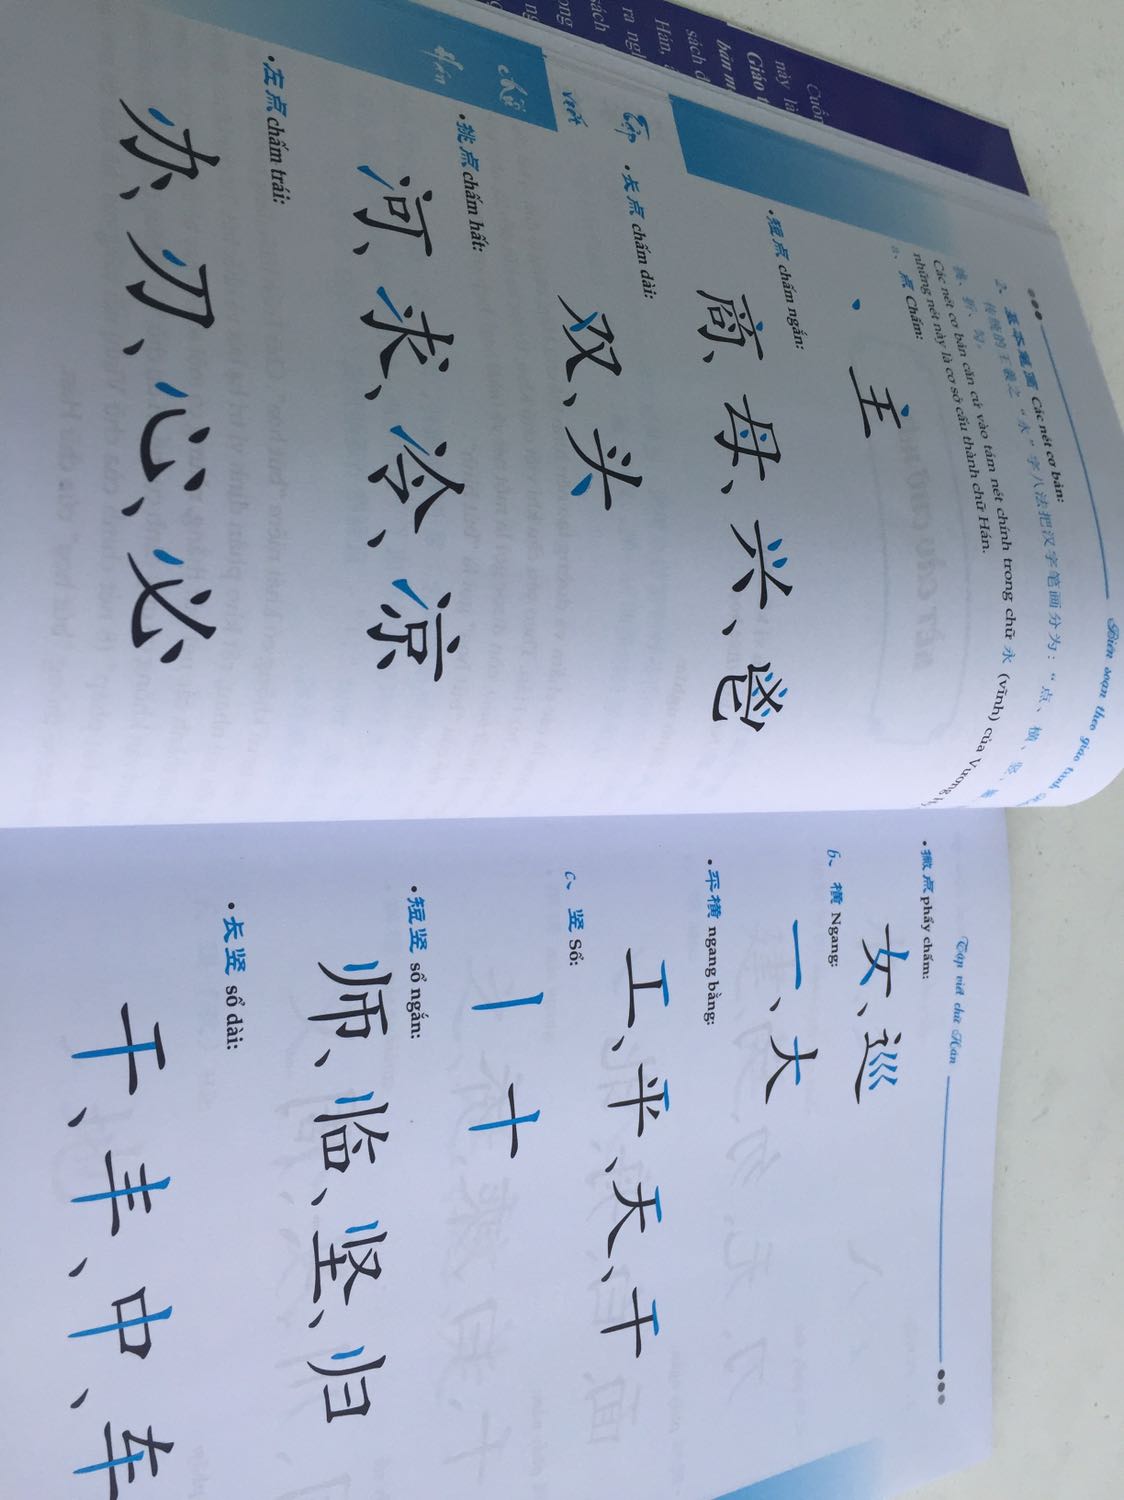 Biên soạn theo giáo trình
2、基本笔画 Các nét cơ bản:
传统的王羲之“永”字八法把汉字笔画分为：“点、横、竖、撇、
折、勾。
Các nét cơ bản căn cứ vào tám nét chính trong chữ 永 (vĩnh) của Vương
những nét này là cơ sở cấu thành chữ Hán.
a、点 Chấm:
丶 主
• 短点 chấm ngắn:
商、母、兴、
• 长点 chấm dài:
双、头
• 挑点 chấm hất:
河、求、冷、凉
• 左点 chấm trái:
办、刃、心、必
Tập
viết
chữ
Hán
Tập viết chữ Hán
• 撇点 phẩy chấm:
女、巡
b、横 Ngang:
一、大
• 平横 ngang bằng:
工、平、天、干
c、竖 Sổ:
丨 十
• 短竖 sổ ngắn:
师、临、坚、归
• 长竖 sổ dài:
干、丰、中、车
Cuốn
này là
Giáo t
bản m
sách đ
Hán,
ra ngh
sách